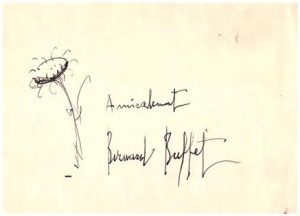 Amicalement
Bernard Buffet